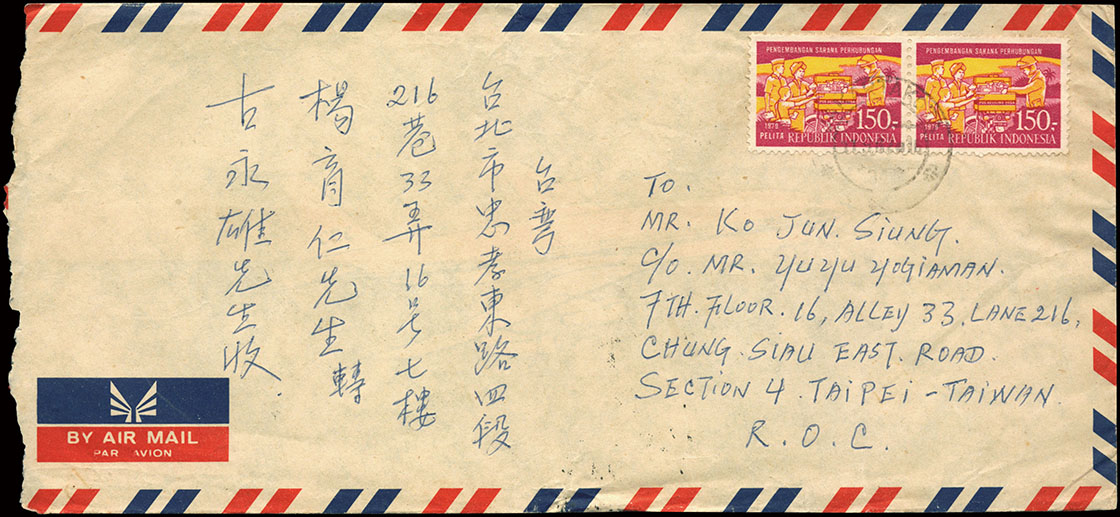 PENGEMBANGAN SARANA PERHUBUNGAN
1979
PELITA
150.-
REPUBLIK INDONESIA
PENGEMBANGAN SARANA PERHUBUNGAN
1979
PELITA
150.-
REPUBLIK INDONESIA
台湾
台北市忠孝東路四段
216巷33弄16号七樓
楊育仁先生轉
古永雄先生收
TO.
MR. KO JUN. SIUNG.
C/O. MR. YUYU YOGIAMAN.
7TH. FLOOR. 16, ALLEY 33, LANE 216,
CHUNG. SIAU EAST. ROAD.
SECTION 4. TAIPEI - TAIWAN.
R. O. C.
BY AIR MAIL
PAR AVION